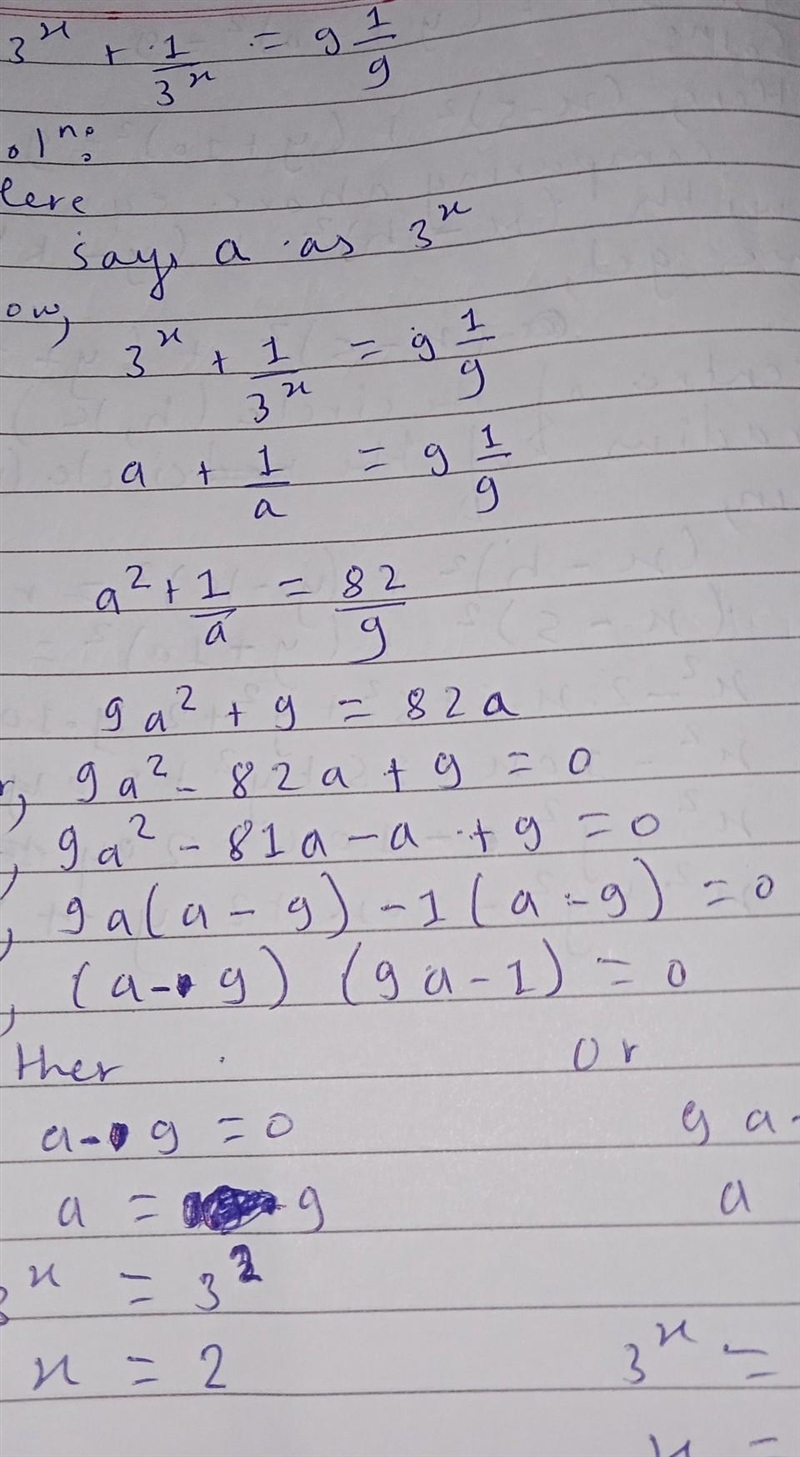 3^x + 1/3^x = 9 1/9
ol^n:
ere
says a as 3^x
ow,
3^x + 1/3^x = 9 1/9
a + 1/a = 9 1/9
a^2 + 1/a = 82/9
9a^2 + 9 = 82a
r, 9a^2 - 82a + 9 = 0
, 9a^2 - 81a - a + 9 = 0
, 9a(a - 9) - 1(a - 9) = 0
, (a - 9) (9a - 1) = 0
ther Or
a - 9 = 0 9a -
a = 9 a
3^x = 3^2
x = 2 3^x =
x =